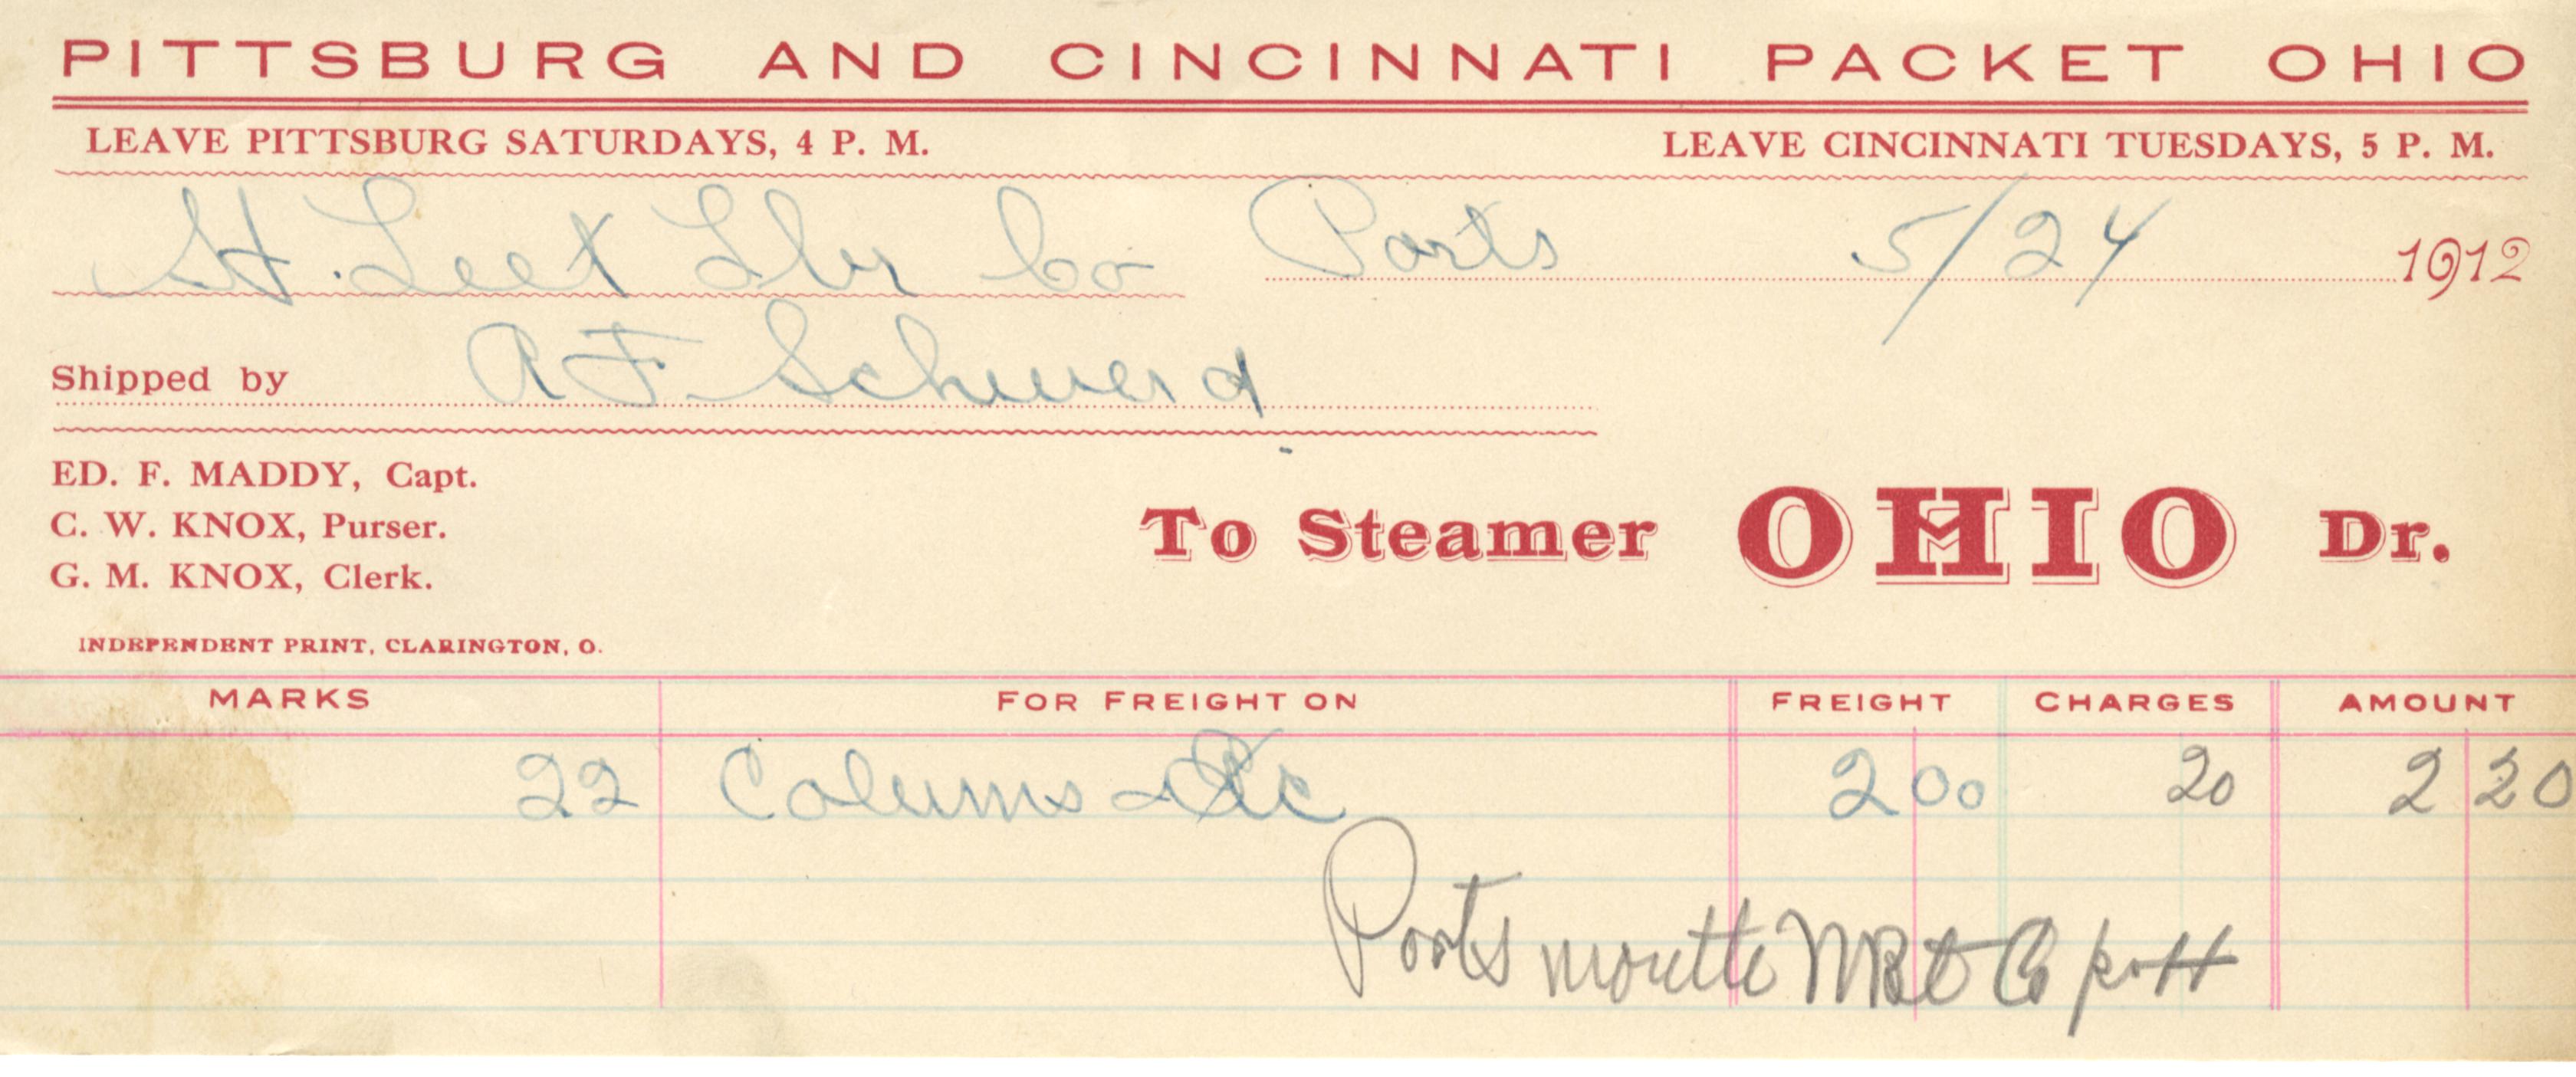 PITTSBURG AND CINCINNATI PACKET OHIO
LEAVE PITTSBURG SATURDAYS, 4 P. M. LEAVE CINCINNATI TUESDAYS, 5 P. M.
H. Leet Lbr Co Ports 5/24 1912
Shipped by A F Schwerd
ED. F. MADDY, Capt.
C. W. KNOX, Purser.
G. M. KNOX, Clerk.
To Steamer OHIO Dr.
INDEPENDENT PRINT, CLARINGTON, O.
MARKS FOR FREIGHT ON FREIGHT CHARGES AMOUNT
22 Colums 2 00 20 2 20
Portsmouth Co